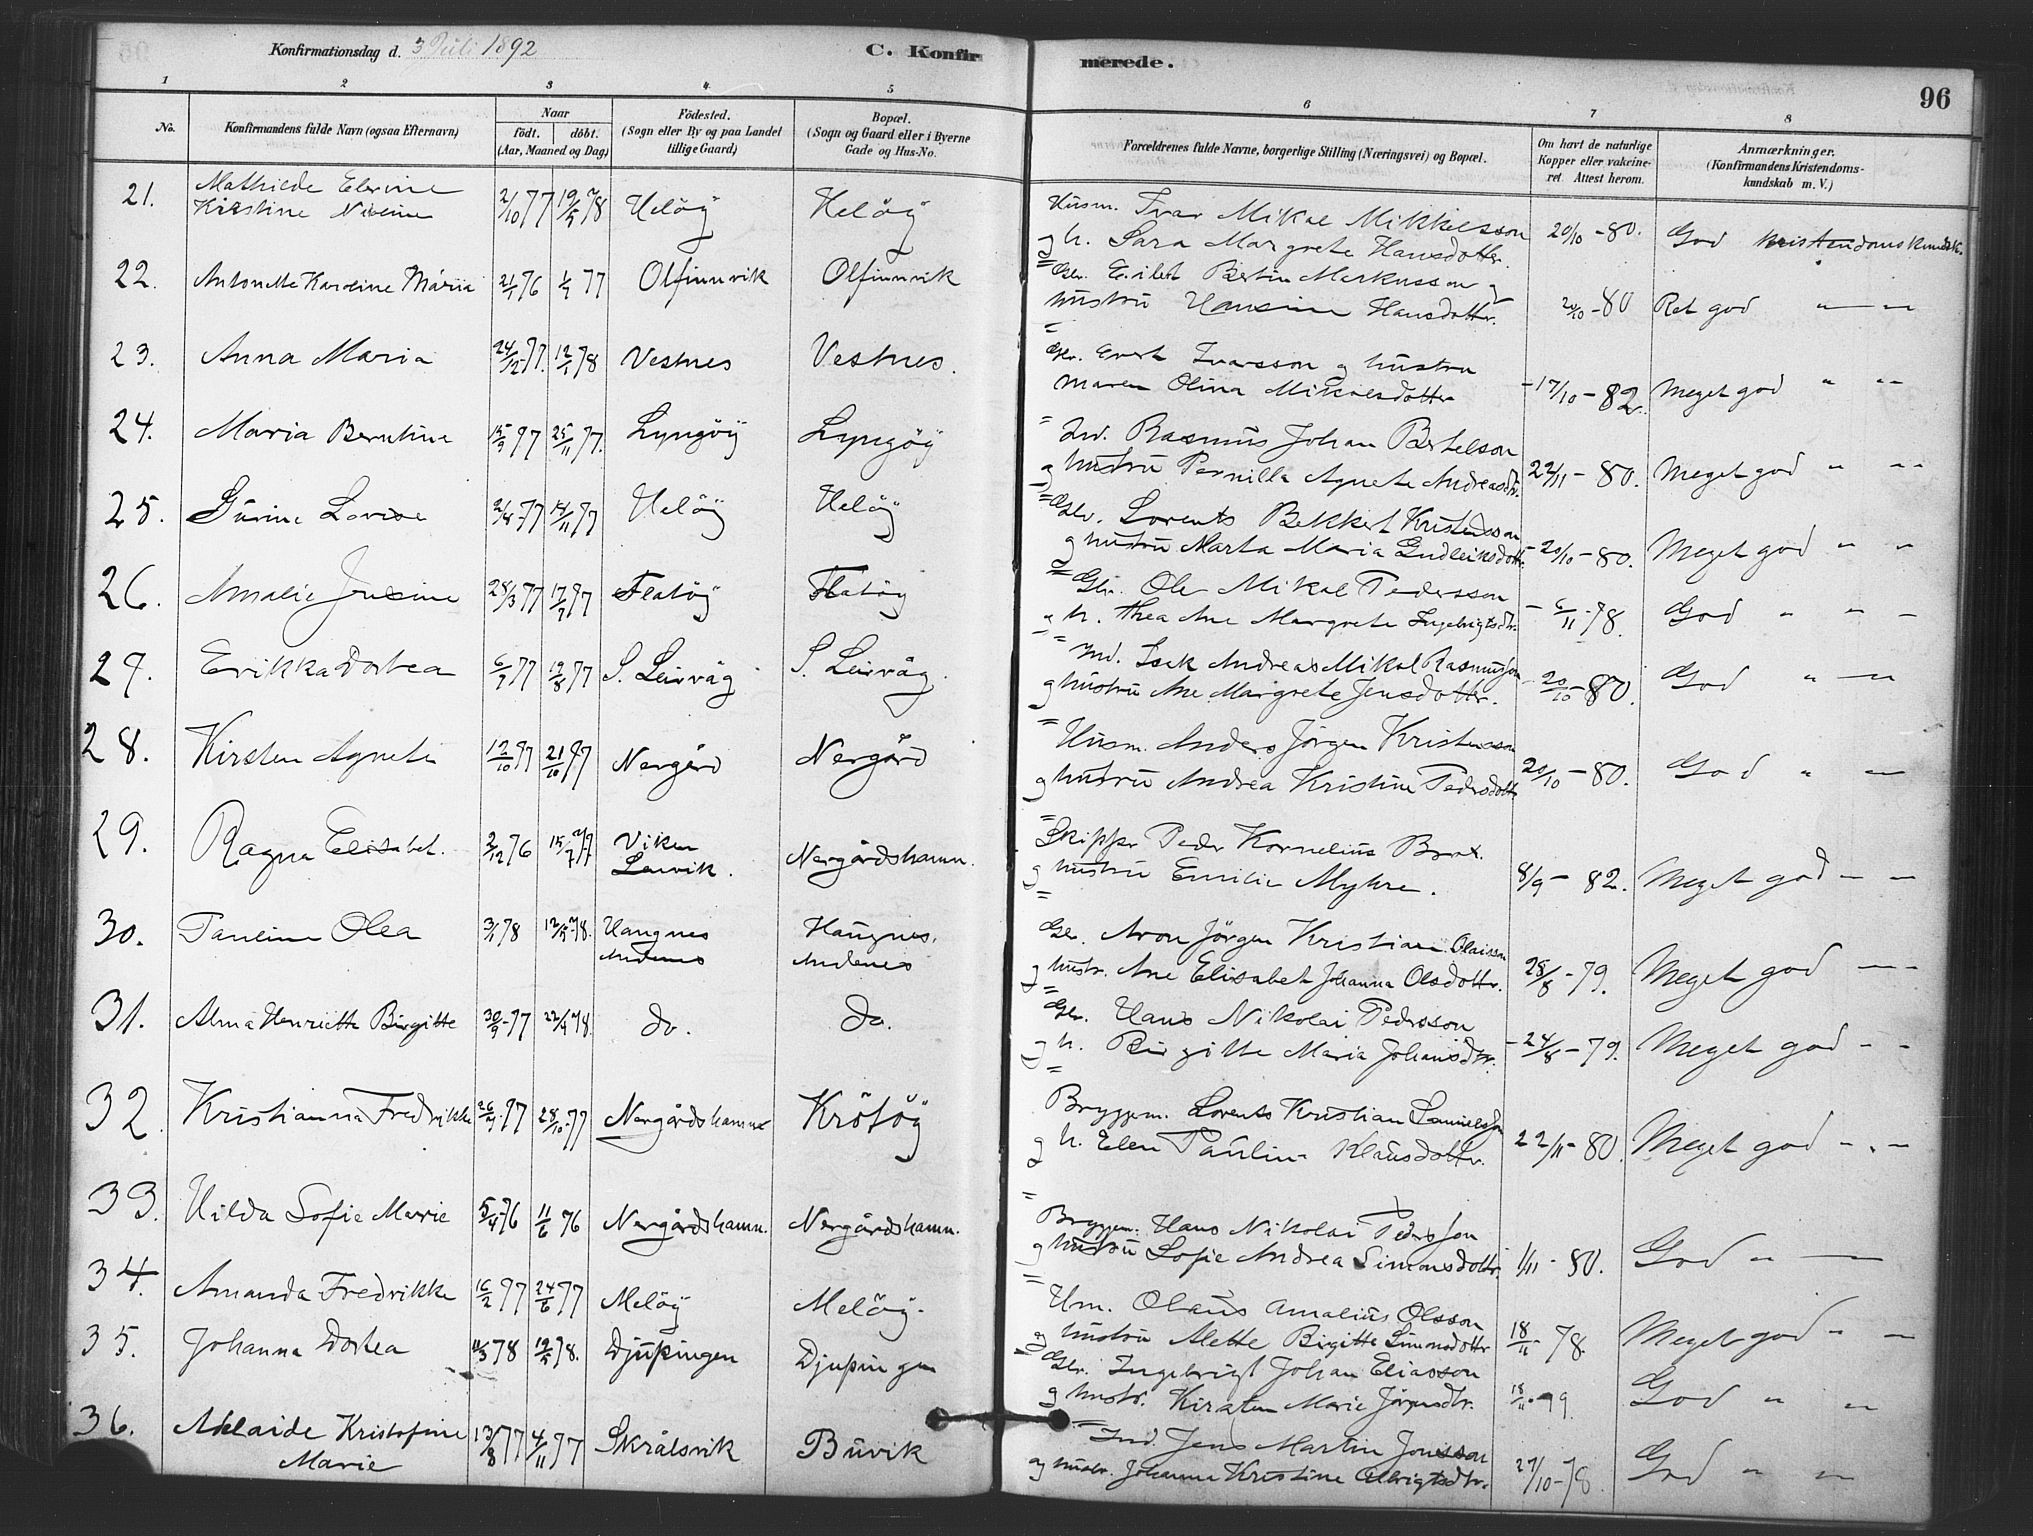 Konfirmationsdag d. 3 Juli 1892
C. Konfirmerede.
96
1 2 3 4 5 6 7 8
No.
Konfirmandens fulde Navn (ogsaa Efternavn)
Naar
födt. döbt.
(Aar, Maaned og Dag)
Födested.
(Sogn eller By og paa Landet
tillige Gaard)
Bopæl.
(Sogn og Gaard eller i Byerne
Gade og Hus-No.
Forældrenes fulde Navne, borgerlige Stilling (Næringsvei) og Bopæl.
Om havt de naturlige
Kopper eller vakcine-
ret. Attest herom.
Anmærkninger.
(Konfirmandens Kristendoms-
kundskab m. V.)
21. Mathilde Elevine
Kirstine Nicoline 2/10 77 19/5 78 Helöÿ Helöÿ
Husm. Ivar Mikal Mikkelsson
og h. Sara Margrete Hansdotter. 20/10 - 80. God Kristendomskundsk.
22. Antonette Karoline Maria 21/1 76 1/7 77 Olfinnvik Olfinnvik
Gbr. Eilert Bertin Markusson og
hustru Hansine Hansdotter. 20/10 - 80 Ret god " —
23. Anna Maria 24/12 77. 12/1 78 Vestnes Vestnes.
Gbr. Evert Ivarsson og hustru
Maren Olina Mikalsdotter - 17/10 - 82. Meget god " "
24. Maria Berntine 15/9 77 25/11 77. Lyngöÿ Lyngöÿ
Ind. Rasmus Johan Bertelson
og hustru Pernilla Agnete Andreasdtr. 22/11 - 80. Meget god " "
25. Gurine Lovise 2/8 77 14/11 77 Helöÿ Helöÿ
Gbr. Lorents Bekkert Kristensson
og hustru Marta Maria Gudleiksdottr. - 20/10 - 80. Meget god " "
26. Amalie Jensine 28/3 77 17/7 77 Flatöÿ Flatöÿ
Gbr. Ole Mikal Pedersson
og h. Thea Ane Margrete Ingebrigtsdtr. - 6/11 - 78. God " " -
27. Erikka Dortea 6/7 77 19/8 77 S. Leirvåg S. Leirvåg.
Ind. Isak Andreas Mikal Rasmusson
og hustru Ane Margrete Jensdotter. - 20/10 - 80. God " —
28. Kirsten Agnete 12/10 77 21/10 77 Nergård Nergård
Husm. Anders Jörgen Kristensson
og hustru Andrea Kristine Pedersdottr 20/10 - 80. God " —
29. Ragna Elisabet. 3/12 76 15/7 77 Viken
Leirvik. Nergårdshamn.
Skipper Peder Kornelius Brox.
og hustru Emilie Myhre. 8/9 - 82. Meget god — —
30. Pauline Olea 3/1 78 12/5 78. Haugnes
Andenes Haugnes,
Andenes
Gbr. Aron Jörgen Kristian Olaisson
og hustr. Ane Elisabet Johanna Olsdottr. 28/8 - 79. Meget god — -
31. Alma Henriette Birgitte 30/9 - 77 22/4 78. do. do.
Gbr. Hans Nikolai Pedersson
og h. Birgitte Maria Johansdtr. - 24/8 - 79. Meget god - -
32. Kristianna Fredrikke 26/9 - 77 28/10 - 77 Nergårdshamn Krötöÿ
Bryggem. Lorents Kristian Samuelsson
og h. Elen Paulina Klausdotter. 22/11 - 80. Meget god - " -
33. Hilda Sofie Marie 5/4 76 11/6 76 Nergårdshamn. Nergårdshamn.
Bryggem. Hans Nikolai Pedersson
og hustru Sofie Andrea Simonsdottr. 1/11 - 80. God " —
34. Amanda Fredrikke 16/2 77 24/6 77 Melöÿ Melöÿ.
Hm. Olaus Amalius Olsson
og hustru Alette Birgitte Simonsdottr 18/11 - 78. Meget god " —
35. Johanna Dortea 11/3 78 19/5 78. Djupingen Djupingen
Gbr. Ingebrigt Johan Eliasson
og hustr. Kirsten Marie Jörgensdtr. 18/11 - 79. God " "
36. Adelaide Kristofine
Marie 13/8 77 4/11 77 Skrålsvik Buvik
Ind. Jens Martin Jonsson
og hustr. Johanna Kristine Albrigtsdtr. 27/10 - 78. God " "